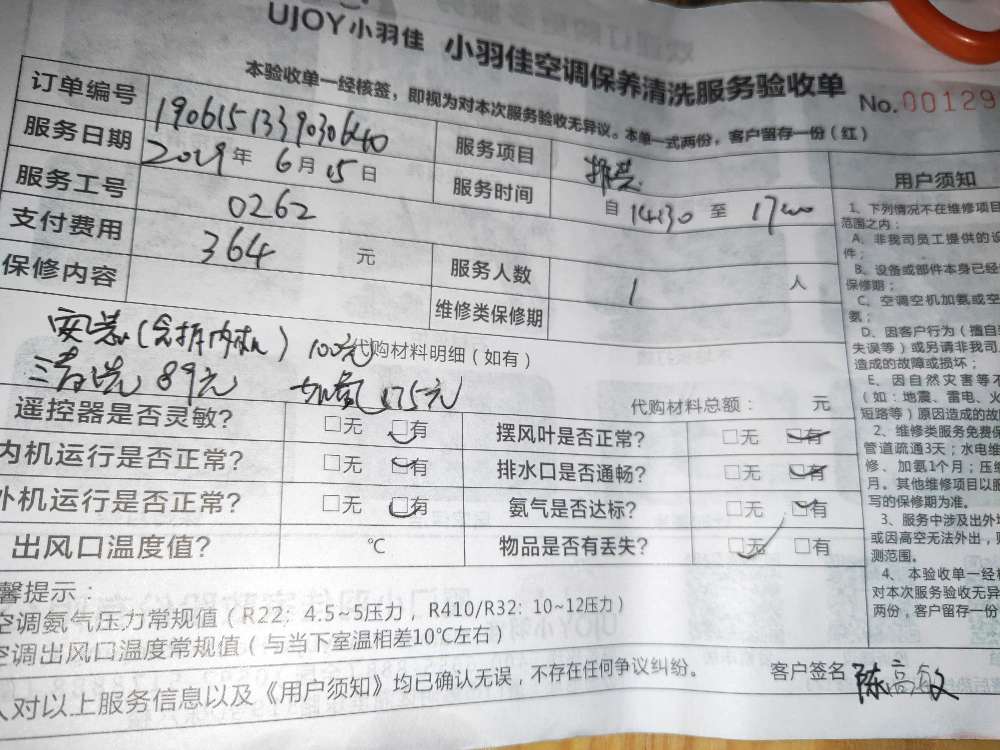 UJOY小羽佳 小羽佳空调保养清洗服务验收单
No.00129
本验收单一经核签，即视为对本次服务验收无异议。本单一式两份，客户留存一份（红）
订单编号 190615133903064 服务项目
服务日期 2019年6月15日 服务时间 自 14:30 至 17:00
服务工号 0262
支付费用 364 元 服务人数 1 人
保修内容 维修类保修期
安装（含拆内机）100元 代购材料明细（如有）
清洗 89元 加氨175元 代购材料总额： 元
遥控器是否灵敏？ □无 □有 摆风叶是否正常？ □无 □有
内机运行是否正常？ □无 □有 排水口是否通畅？ □无 □有
外机运行是否正常？ □无 □有 氨气是否达标？ □无 □有
出风口温度值？ ℃ 物品是否有丢失？ □无 □有
馨提示：
空调氨气压力常规值（R22：4.5~5压力，R410/R32：10~12压力）
空调出风口温度常规值（与当下室温相差10℃左右）
人对以上服务信息以及《用户须知》均已确认无误，不存在任何争议纠纷。 客户签名 陈高敏
用户须知
1、下列情况不在维修项目
范围之内：
A、非我司员工提供的设
件；
B、设备或部件本身已经
保修期；
C、空调空机加氨或空
氨；
D、因客户行为（擅自
失误等）或另请非我司
造成的故障或损坏；
E、因自然灾害等不
（如：地震、雷电、火
短路等）原因造成的故
2、维修类服务免费保
管道疏通3天；水电维
修、加氨1个月；压缩
月。其他维修项目以服
写的保修期为准。
3、服务中涉及出外墙
或因高空无法外出，则
测范围。
4、本验收单一经核
对本次服务验收无异
两份，客户留存一份